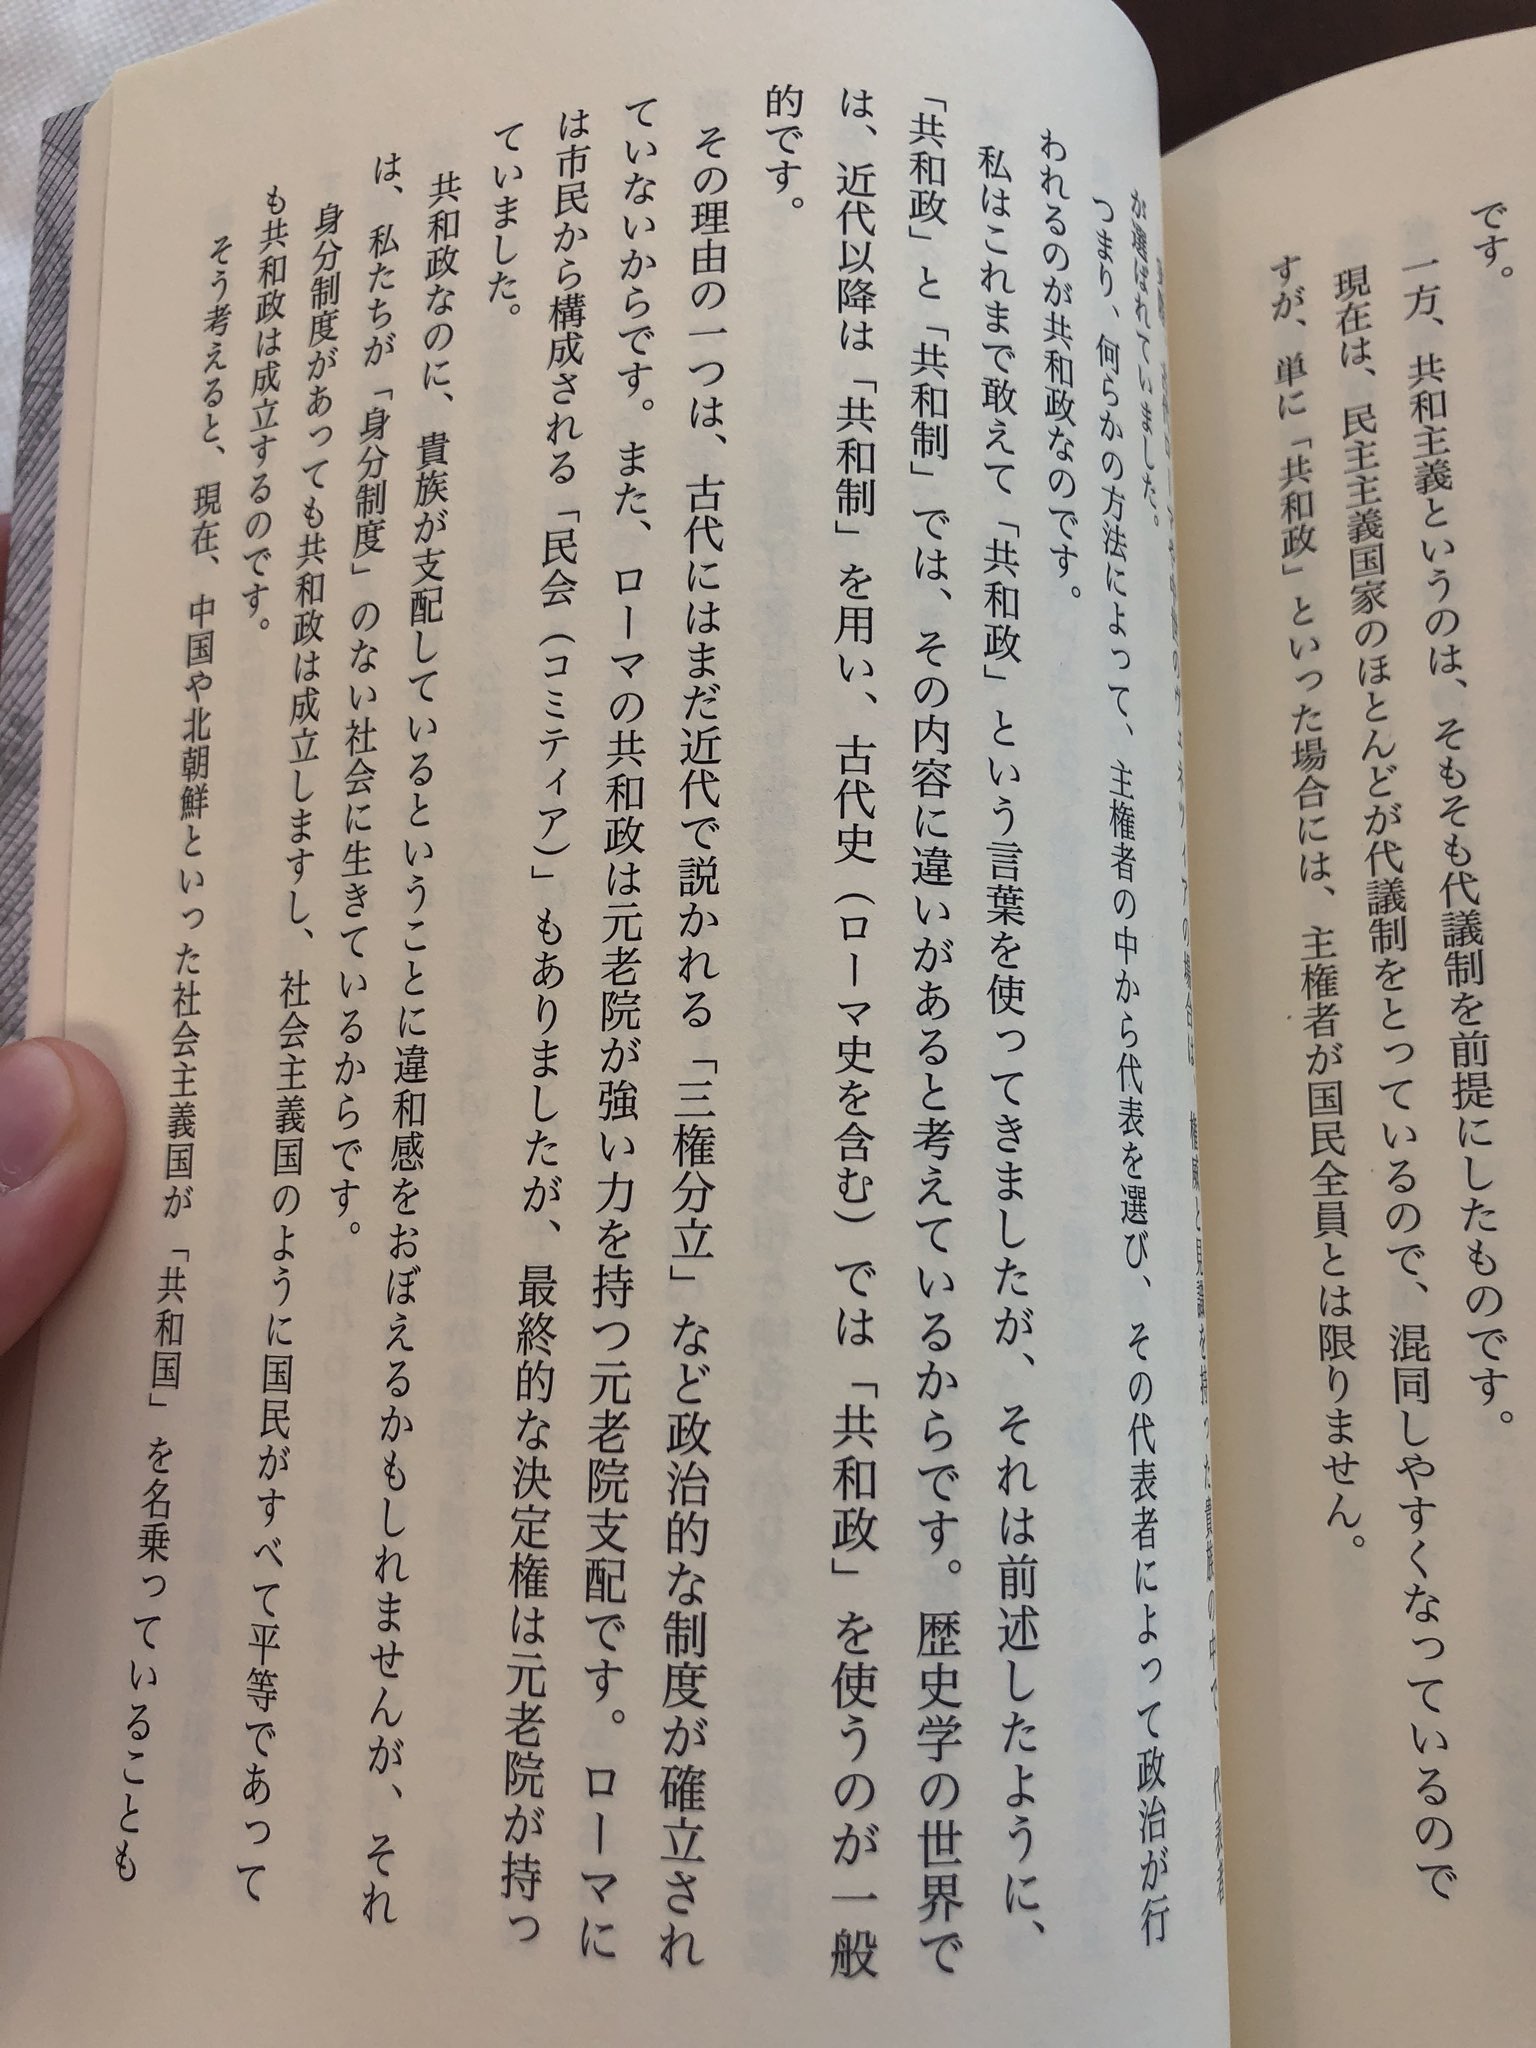 です。
一方、共和主義というのは、そもそも代議制を前提にしたものです。
現在は、民主主義国家のほとんどが代議制をとっているので、混同しやすくなっているので
すが、単に「共和政」といった場合には、主権者が国民全員とは限りません。
権威と見識を持った貴族の中で、代表者
が選ばれていました。
つまり、何らかの方法によって、主権者の中から代表を選び、その代表者によって政治が行
われるのが共和政なのです。
私はこれまで敢えて「共和政」という言葉を使ってきましたが、それは前述したように、
「共和政」と「共和制」では、その内容に違いがあると考えているからです。歴史学の世界で
は、近代以降は「共和制」を用い、古代史（ローマ史を含む）では「共和政」を使うのが一般
的です。
その理由の一つは、古代にはまだ近代で説かれる「三権分立」など政治的な制度が確立され
ていないからです。また、ローマの共和政は元老院が強い力を持つ元老院支配です。ローマに
は市民から構成される「民会（コミティア）」もありましたが、最終的な決定権は元老院が持っ
ていました。
共和政なのに、貴族が支配しているということに違和感をおぼえるかもしれませんが、それ
は、私たちが「身分制度」のない社会に生きているからです。
身分制度があっても共和政は成立しますし、社会主義国のように国民がすべて平等であって
も共和政は成立するのです。
そう考えると、現在、中国や北朝鮮といった社会主義国が「共和国」を名乗っていることも